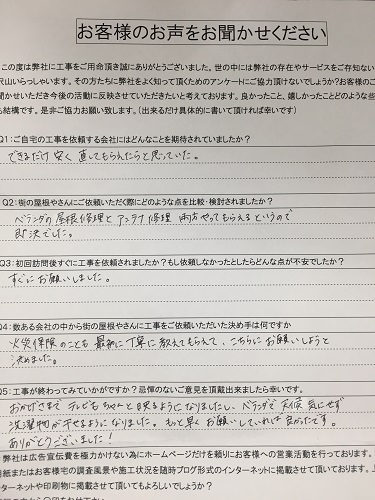 お客様のお声をお聞かせください
この度は弊社に工事をご用命頂き誠にありがとうございました。世の中には弊社の存在やサービスをご存知ない
沢山いらっしゃいます。その方たちに弊社をよく知って頂くためのアンケートにご協力頂けないでしょうか？お客様のご
聞かせいただき今後の活動に反映させていただきたいと考えております。良かったこと、嬉しかったことどのような些
も結構です。是非ご協力お願い致します。（出来るだけ具体的に書いて頂ければ幸いです）
Q1：ご自宅の工事を依頼する会社にはどんなことを期待されていましたか？
できるだけ安く直してもらえたらと思っていた。
Q2：街の屋根やさんにご依頼いただく際にどのような点を比較・検討されましたか？
ベランダの屋根修理とアンテナ修理両方やってもらえるというので
即決でした。
Q3：初回訪問後すぐに工事を依頼されましたか？もし依頼しなかったとしたらどんな点が不安でしたか？
すぐにお願いしました。
Q4：数ある会社の中から街の屋根やさんに工事をご依頼いただいた決め手は何ですか
火災保険のことも最初に丁寧に教えてもらえて、こちらにお願いしようと
決めました。
Q5：工事が終わってみていかがですか？忌憚のないご意見を頂戴出来ましたら幸いです。
おかげさまでテレビもちゃんと映るようになりましたし、ベランダで天候気にせず
洗濯物が干せるようになりました。もっと早くお願いしていれば良かったです。
ありがとうございました！
弊社は広告宣伝費を極力かけない為にホームページだけを頼りにお客様への営業活動を行っております。
用紙またはお客様宅の調査風景や施工状況を随時ブログ形式のインターネットに掲載させて頂いております。
ターネットや印刷物に掲載させて頂いてもよろしいでしょうか？